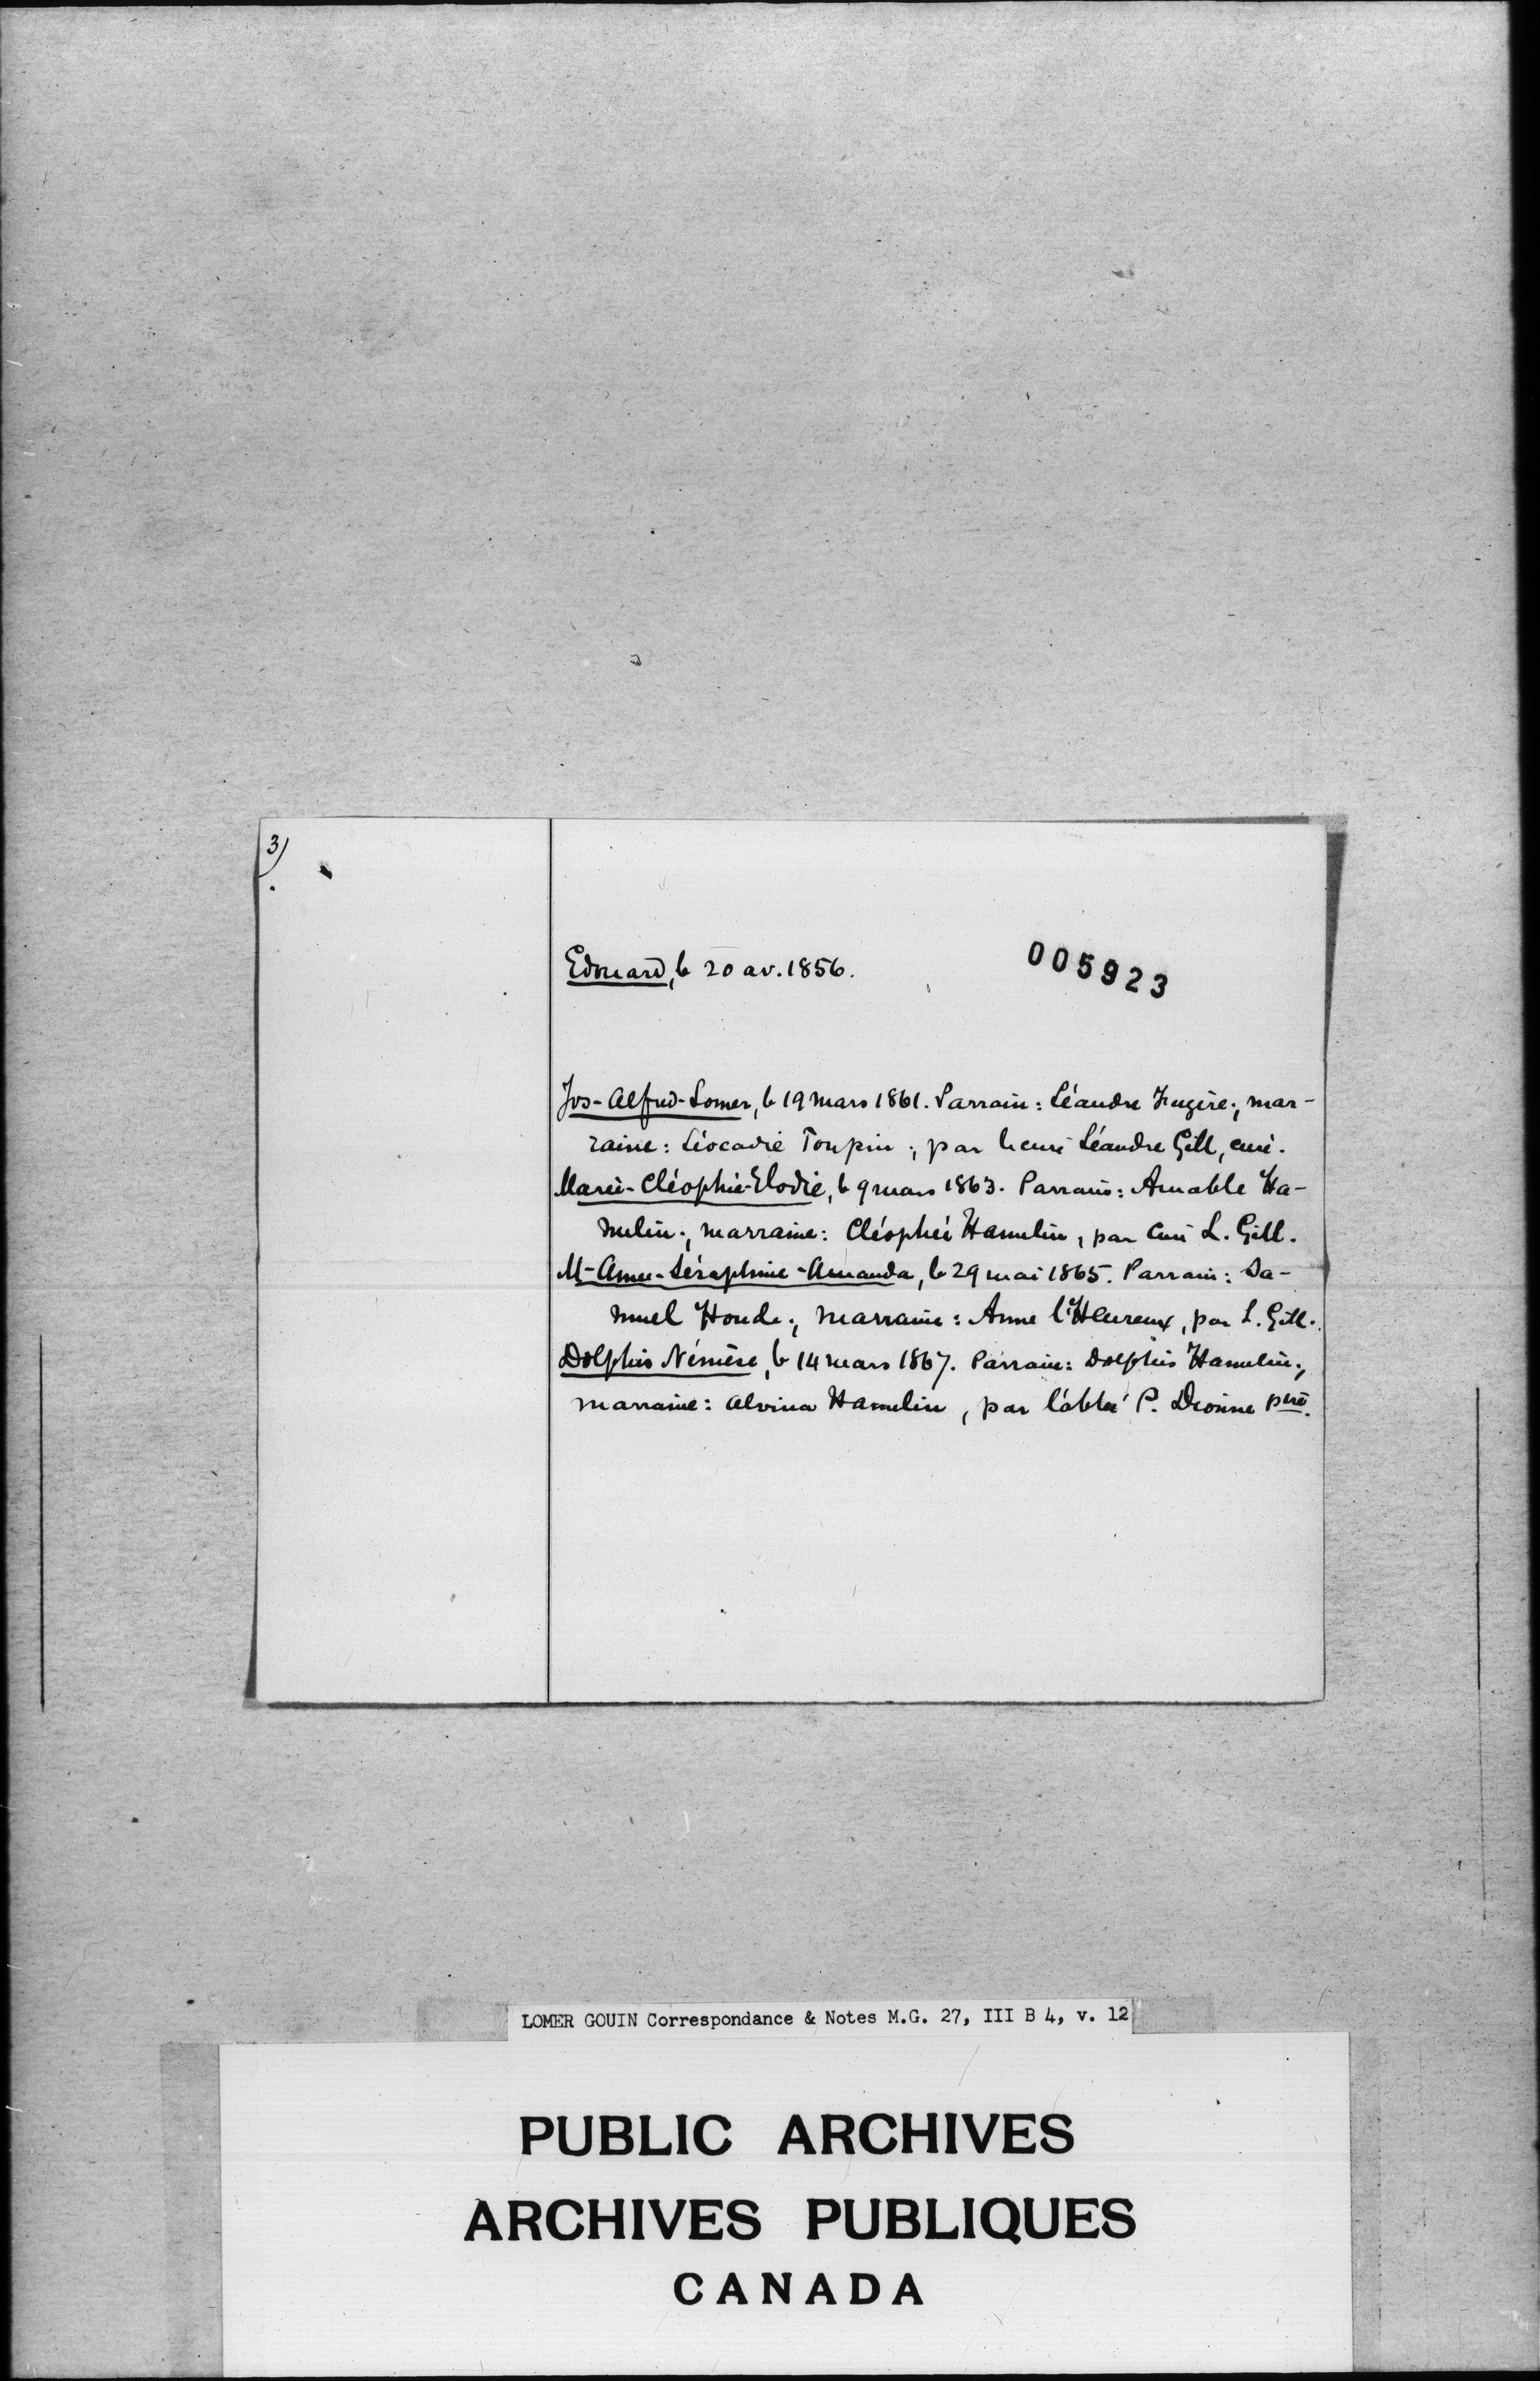 3)
Edouard, le 20 av. 1856.
005923
Jos-Alfred-Lomer, le 19 mars 1861. Parrain: Léandre Fugère; mar-
raine: Léocadie Toupin; par Léandre Gill, curé.
Marie-Cléophie-Elodie, le 9 mars 1863. Parrain: Amable Ha-
melin; marraine: Cléophée Hamelin, par curé L. Gill.
M-Anne-Séraphine-Amanda, le 29 mai 1865. Parrain: Sa-
muel Houde; marraine: Anne l'Heureux, par L. Gill.
Dolphis Némèse, le 14 mars 1867. Parrain: Dolphis Hamelin;
marraine: Alvina Hamelin, par l'abbé P. Dionne ptre.
LOMER GOUIN Correspondance & Notes M.G. 27, III B 4, v. 12
PUBLIC ARCHIVES
ARCHIVES PUBLIQUES
CANADA